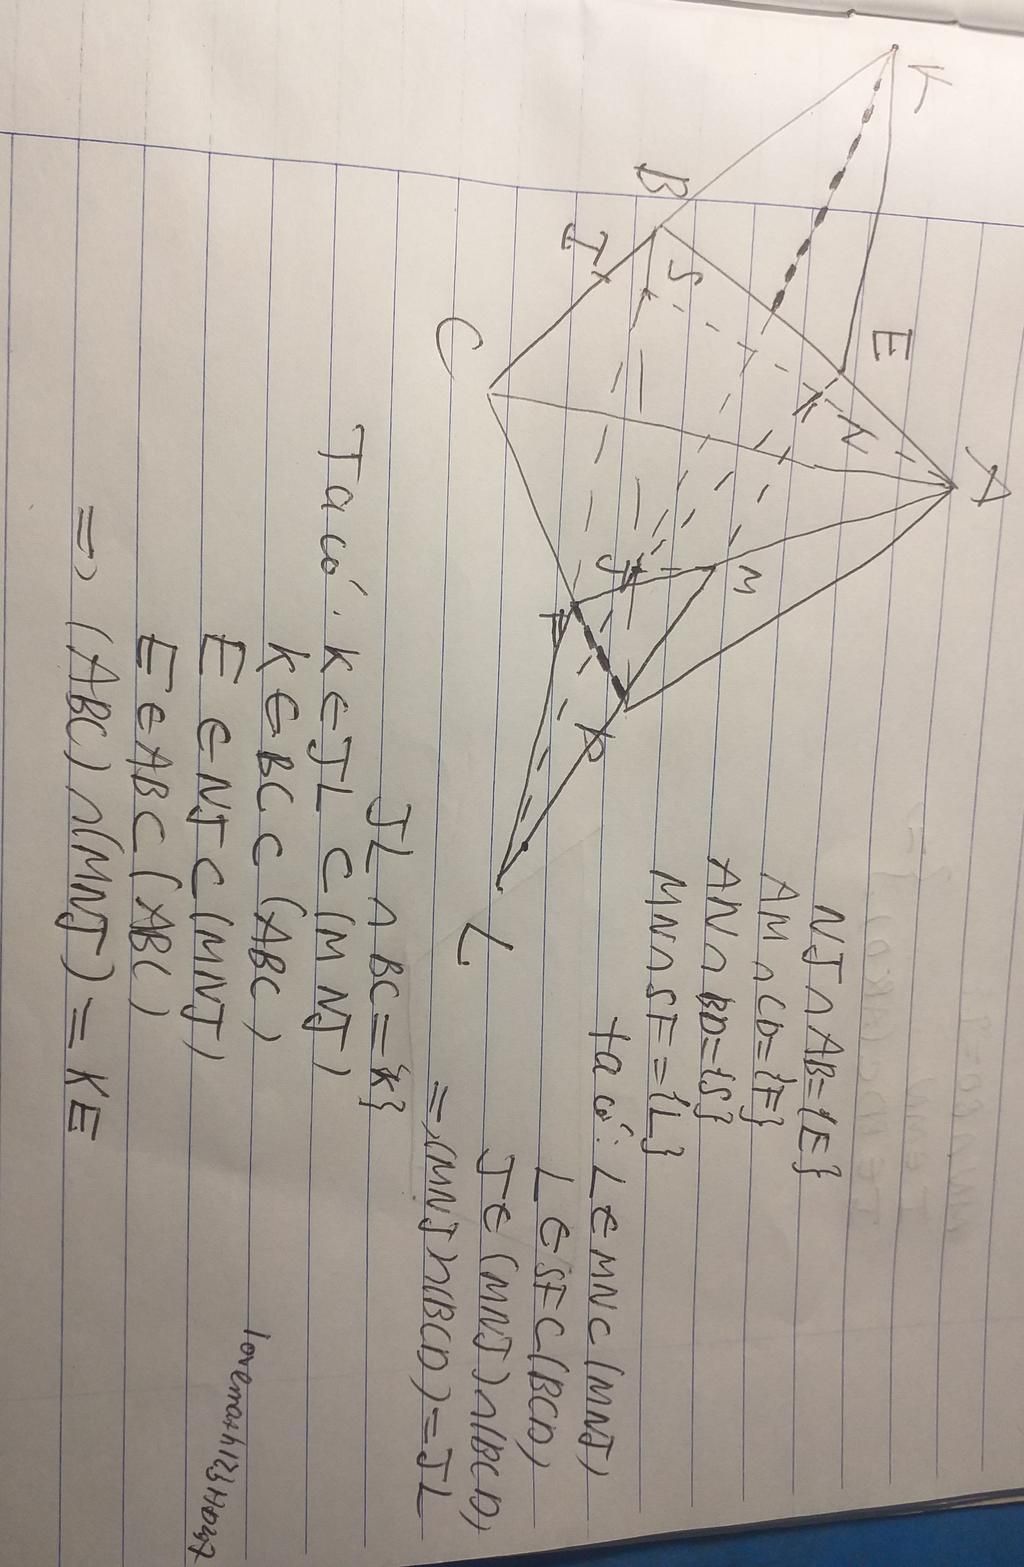 K
B
I
S
C
E
N
A
M
J
F
D
L
NJ ∩ AB = {E}
AM ∩ CD = {F}
AN ∩ BD = {S}
MN ∩ SF = {L}
ta có: L ∈ MN ⊂ (MNJ)
L ∈ SF ⊂ (BCD)
J ∈ (MNJ) ∩ (BCD)
=> (MNJ) ∩ (BCD) = JL
JL ∩ BC = {K}
Ta có: K ∈ JL ⊂ (MNJ)
K ∈ BC ⊂ (ABC)
E ∈ NJ ⊂ (MNJ)
E ∈ AB ⊂ (ABC)
=> (ABC) ∩ (MNJ) = KE